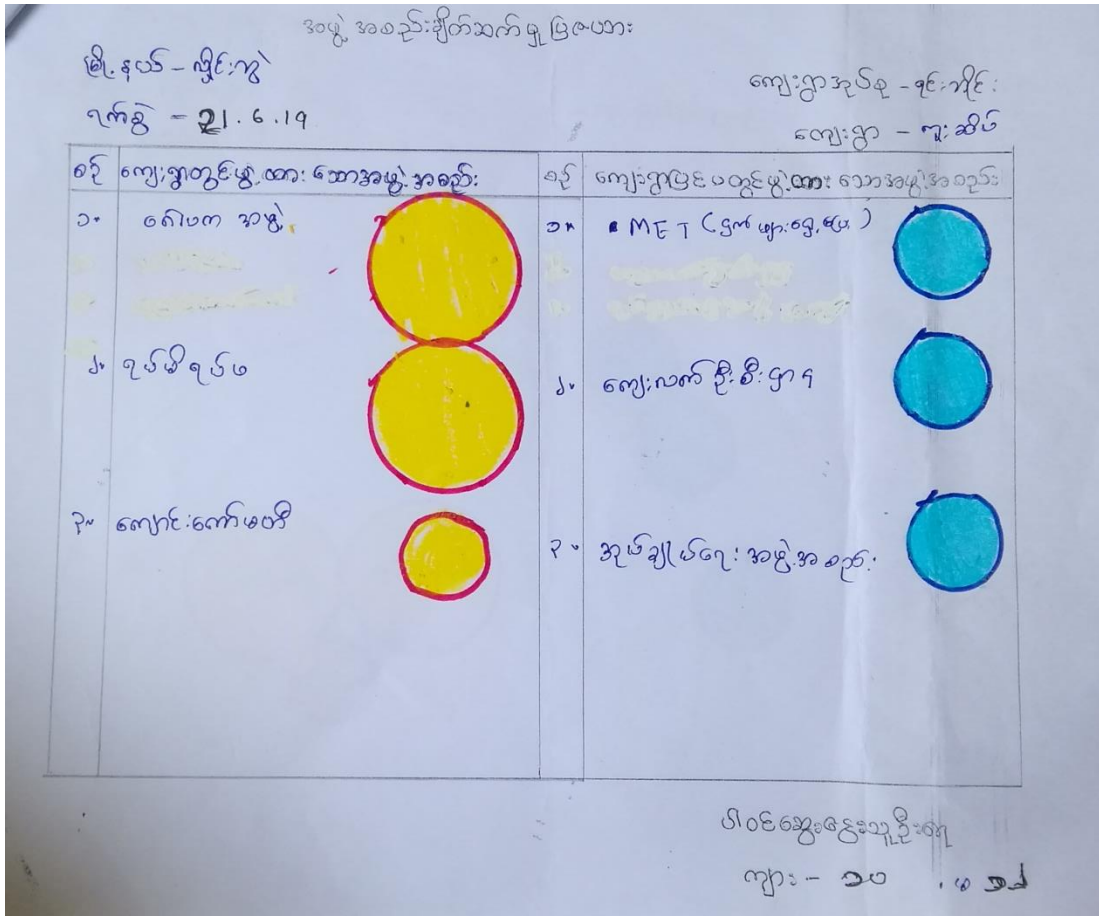 အဖွဲ့အစည်းချိတ်ဆက်မှုပြဇယား
မြို့နယ် - လှိုင်းဘွဲ
ကျေးရွာအုပ်စု -
ရက်စွဲ - 21.6.19
ကျေးရွာ - ကူးဆိပ်
စဉ် ကျေးရွာတွင်ဖွဲ့ထားသောအဖွဲ့အစည်း
စဉ် ကျေးရွာပြင်ပတွင်ဖွဲ့ထားသောအဖွဲ့အစည်း
၁။ ဂေါပကအဖွဲ့
၁။ MET (ငှက်ဖျား
၂။ ရပ်မိရပ်ဖ
၂။ ကျေးလက်ဦးစီးဌာန
၃။ ကျောင်းကော်မတီ
၃။ အုပ်ချုပ်ရေးအဖွဲ့အစည်း
ပါဝင်ဆွေးနွေးသူဦးရေ
ကျား - ၁၀ ၊ မ